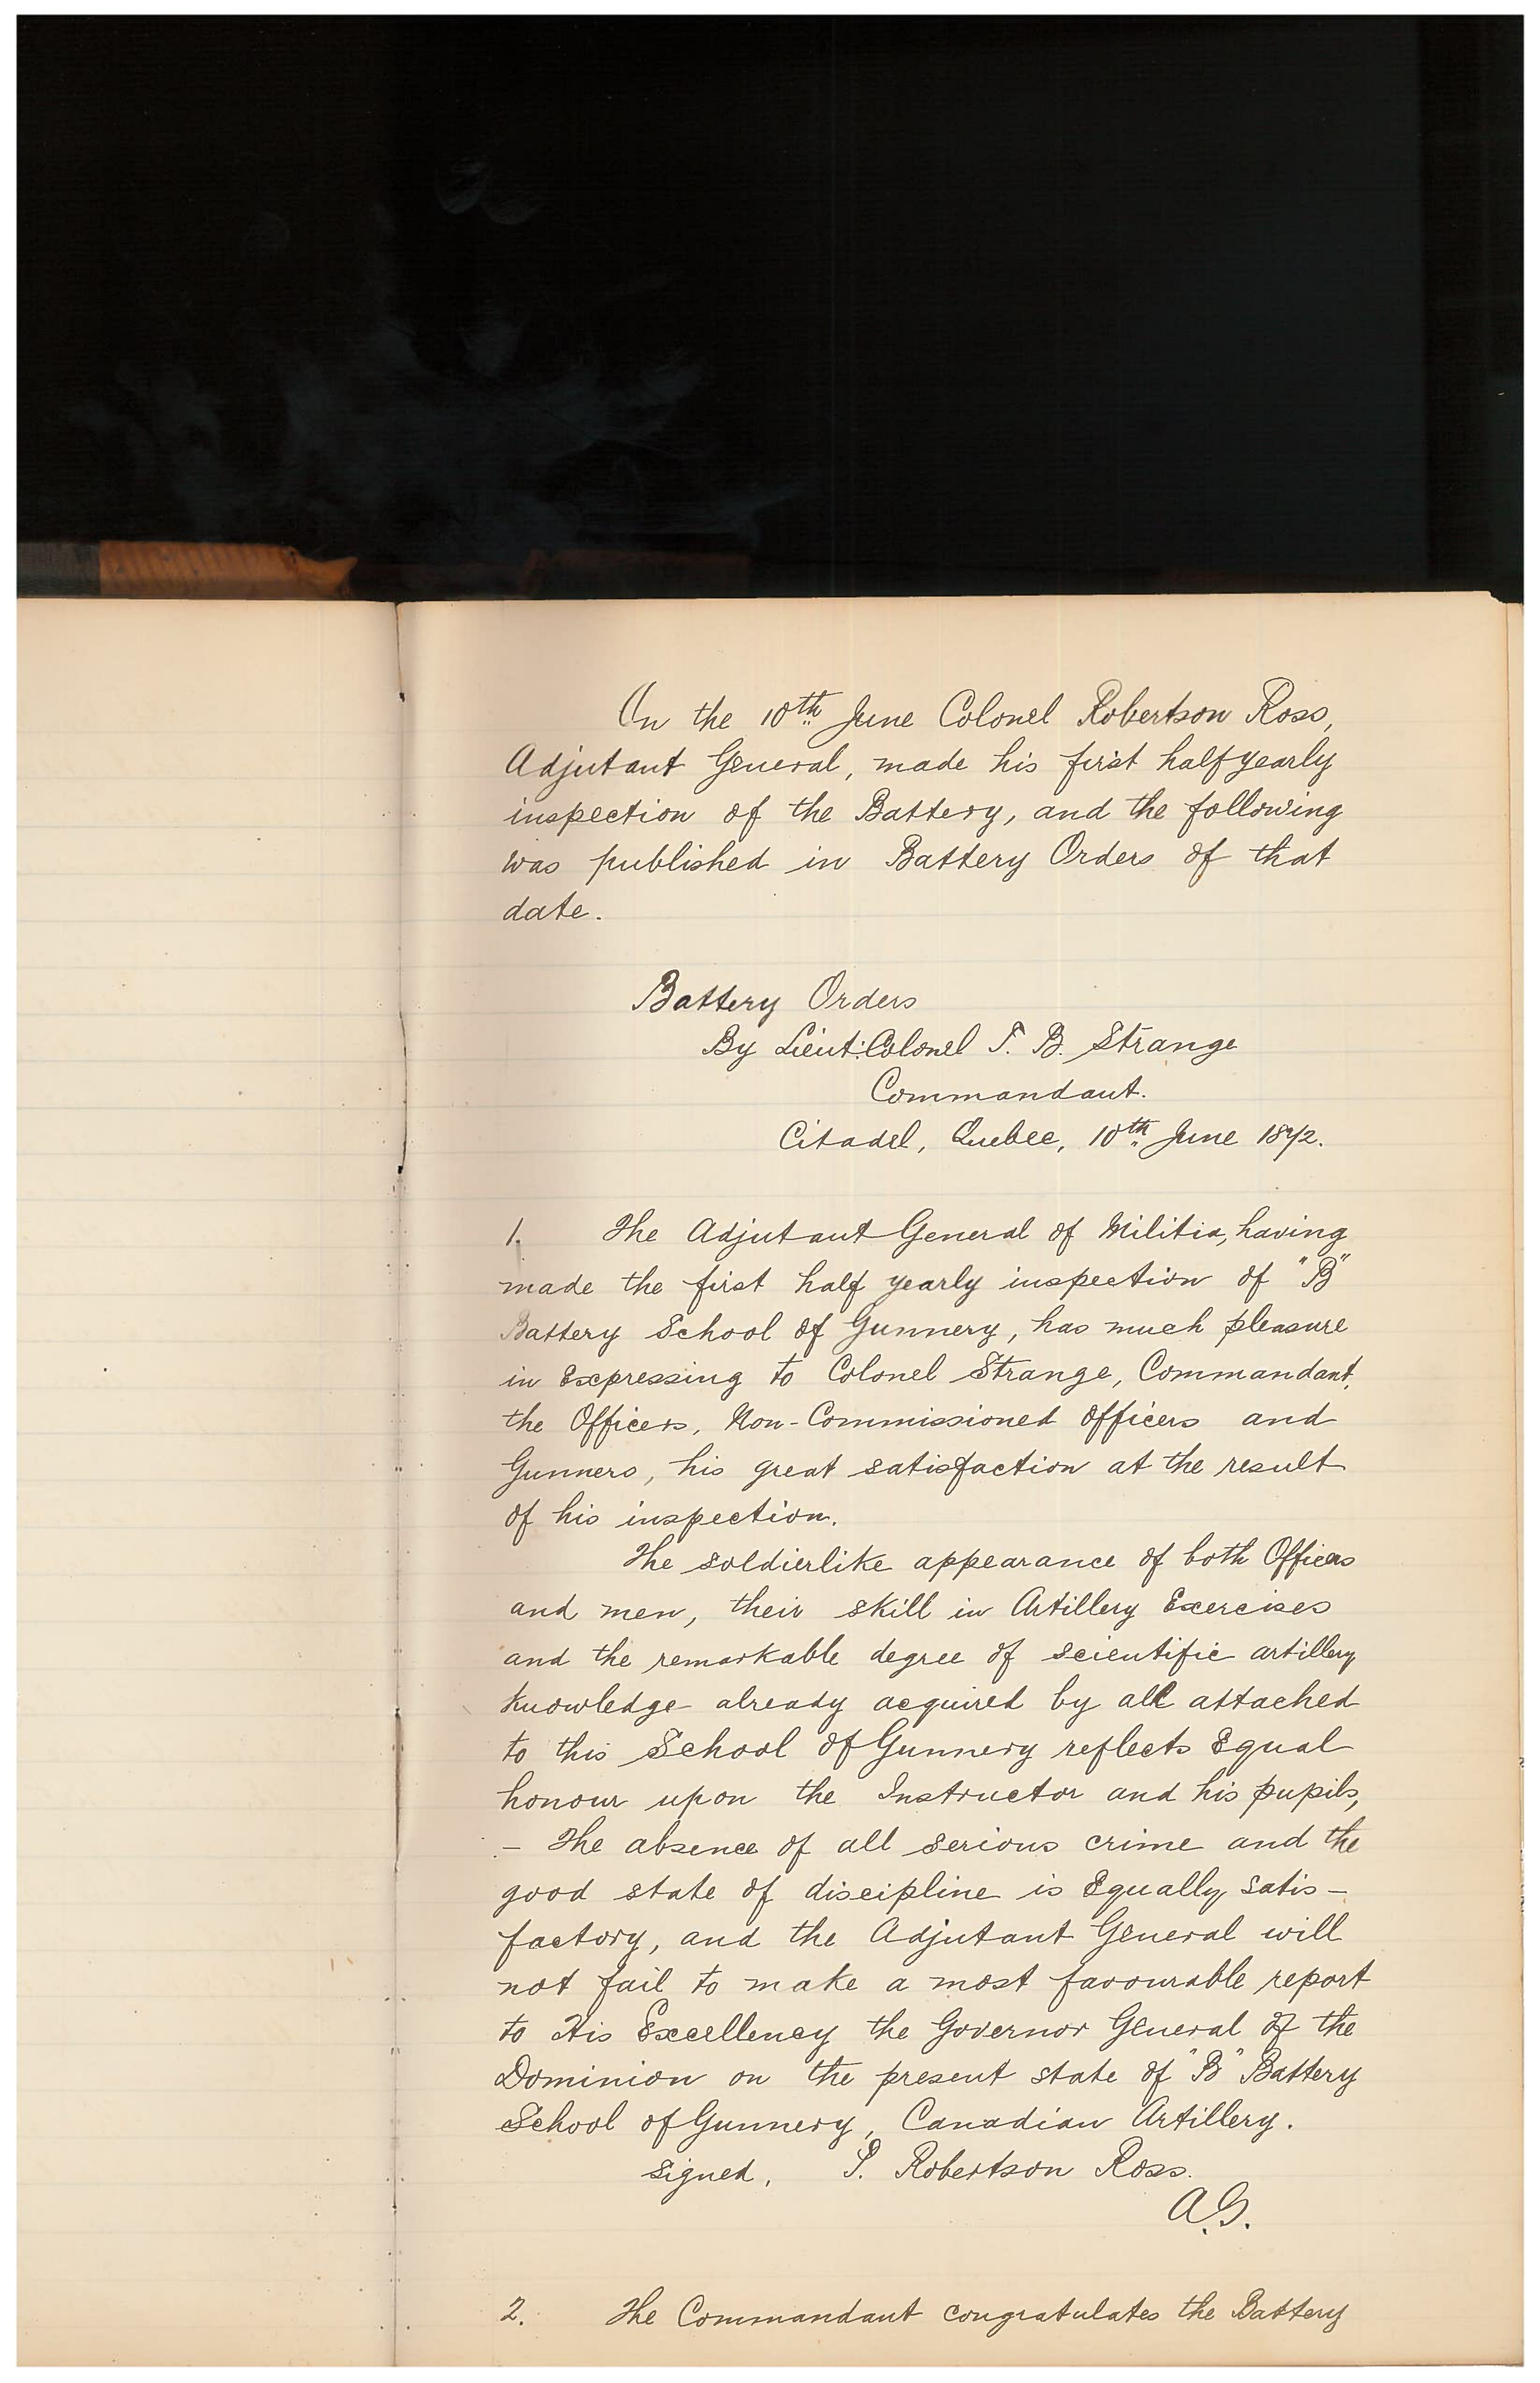 On the 10th June Colonel Robertson Ross,
Adjutant General, made his first half yearly
inspection of the Battery, and the following
was published in Battery Orders of that
date.
Battery Orders
By Lieut: Colonel T. B. Strange
Commandant.
Citadel, Quebec, 10th June 1872.
1. The Adjutant General of Militia, having
made the first half yearly inspection of "B"
Battery School of Gunnery, has much pleasure
in Expressing to Colonel Strange, Commandant,
the Officers, Non-Commissioned Officers and
Gunners, his great satisfaction at the result
of his inspection.
The soldierlike appearance of both Officers
and men, their skill in Artillery Exercises
and the remarkable degree of scientific artillery
knowledge already acquired by all attached
to this School of Gunnery reflects Equal
honour upon the Instructor and his pupils,
- The absence of all serious crime and the
good state of discipline is Equally satis-
factory, and the Adjutant General will
not fail to make a most favourable report
to His Excellency the Governor General of the
Dominion on the present state of "B" Battery
School of Gunnery, Canadian Artillery.
Signed, P. Robertson Ross.
A.G.
2. The Commandant congratulates the Battery